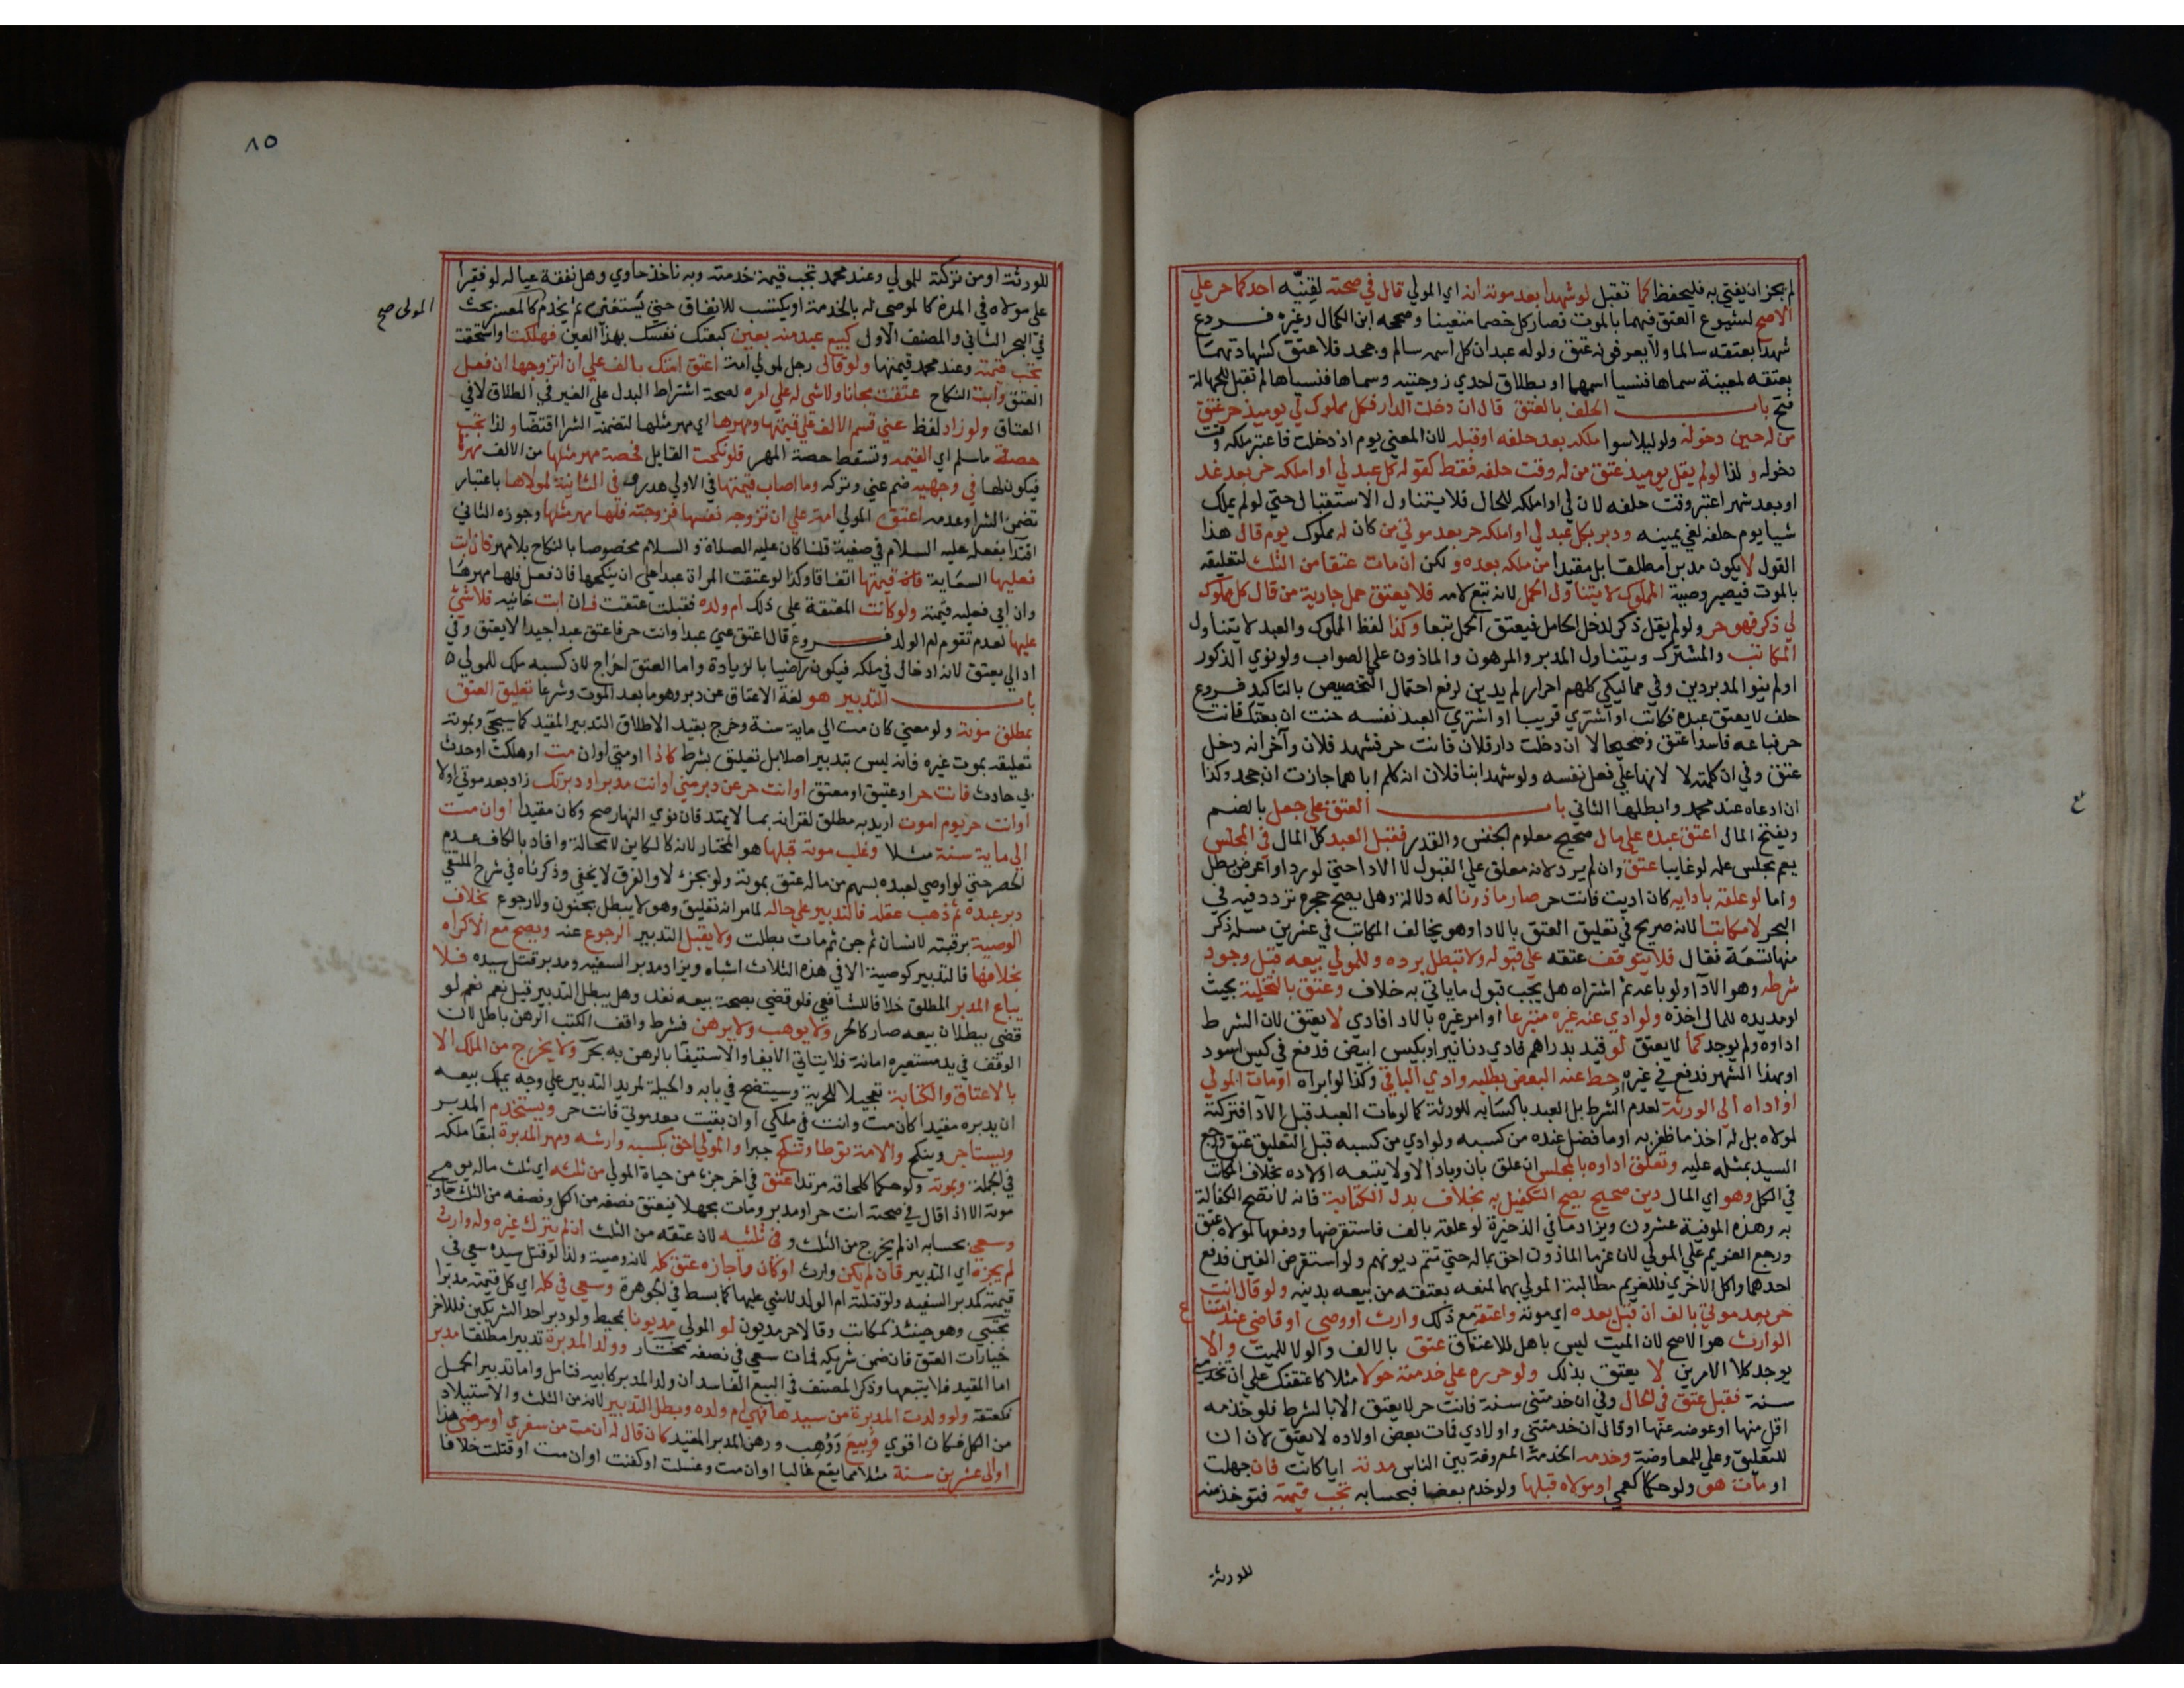 لم يجز ان يفتي به فليحفظ كما تقبل لو شهدا بعد موته انه اي المولي قال في صحته لقنيّه احدكما حر علي
الاصح لشيوع العتق فيهما بالموت فصار كل خصما متعينا وصححه ابن الكمال وغيره فروع
شهدا بعتقه سالما ولا يعرفونه عتق ولو له عبدان كل اسمه سالم وجحد فلا عتق كشهادتهما
بعتقه لمعينة سماها فنسيا اسمها او بطلاق احدي زوجتيه وسماها فنسياها لم تقبل للجهالة
فتح باب الحلف بالعتق قال ان دخلت الدار فكل مملوك لي يوميذ حر عتق
من له حين دخوله ولو ليلا سوا ملكه بعد حلفه او قبله لان المعني يوم اذ دخلت فاعتبر ملكه وقت
دخوله ولذا لو لم يقل يوميذ عتق من له وقت حلفه فقط كقوله كل عبد لي او املكه حر بعد غد
او بعد شهر اعتبر وقت حلفه لان لي او املكه للحال فلا يتناول الاستقبال حتي لو لم يملك
شيا يوم حلفه لغي يمينه ودبر بكل عبد لي او املكه حر بعد موتي من كان له مملوك يوم قال هذا
القول لا يكون مدبرا مطلقا بل مقيدا من ملكه بعده ولكن ان مات عتقا من الثلث لتعليقه
بالموت فيصير وصية المملوك لا يتناول الحمل لانه تبع لامه فلا يعتق حمل جارية من قال كل مملوك
لي ذكر فهو حر ولو لم يقل ذكر لدخل الحامل فيعتق الحمل تبعا وكذا لفظ المملوك والعبد لا يتناول
المكاتب والمشترك ويتناول المدبر والمرهون والماذون علي الصواب ولو نوي الذكور
او لم ينو المدبر دين وفي مماليكي كلهم احرار لم يدين لرفع احتمال التخصيص بالتاكيد فروع
حلف لا يعتق عبده فكاتب او اشتري قريبا او اشتري العبد نفسه حنث ان بعتك فانت
حر فباعه فاسدا عتق وصحيحا لا ان دخلت دار فلان فانت حر فشهد فلان وآخر انه دخل
عتق وفي ان كلمته لا لانها علي فعل نفسه ولو شهد ابنا فلان انه كلم اباهما جازت ان جحد وكذا
ان ادعاه عند محمد وابطلها الثاني باب العتق علي جعل بالضم
ويفتح المال اعتق عبده علي مال صحيح معلوم الجنس والقدر فقبل العبد كل المال في المجلس
يعم مجلس علمه لو غايبا عتق وان لم يرد لانه معلق علي القبول لا الادا حتي لو رد او اعرض بطل
واما لو علقه بادايه كان اديت فانت حر صار ماذونا له دلالة وهل يصح حجره تردد فيه في
البحر لا مكاتبا لانه صريح في تعليق العتق بالادا وهو يخالف المكاتب في عشرين مسلة ذكر
منها تسعة فقال فلا يتوقف عتقه علي قبوله ولا تبطل برده وللمولي بيعه قبل وجود
شرطه وهو الادآ ولو باعه ثم اشتراه هل يجب قبول ما ياتي به خلاف وعتق بالتخلية بحيث
لو مد يده للمال اخذه ولو ادي عنه غيره متبرعا او امر غيره بالادا فادي لا يعتق لان الشرط
اداوه ولم يوجد كما لا يعتق لو قيد بدراهم فادي دنانير او بكيس ابيض فدفع في كيس اسود
او بهذا الشهر فدفع في غيره حط عنه البعض بطلبه وادي الباقي وكذا لو ابراه او مات المولي
او اداه الي الورثة لعدم الشرط بل العبد باكسابه للورثة كما لو مات العبد قبل الادآ فتركته
لمولاه بل له اخذ ما ظفر به او ما فضل عنده من كسبه ولو ادي من كسبه قبل التعليق عتق ورجع
السيد بمثله عليه وتعلق اداوه بالمجلس ان علق بان وباذا لا ولا يتبعه اولاده بخلاف المكاتب
في الكل وهو اي المال دين صحيح يصح التكفيل به بخلاف بدل الكتابة فانه لا تصح الكفالة
به وهذه الموفية عشرون ويزاد ما في الذخيرة لو علقه بالف فاستقرضها ودفعها لمولاه عتق
ورجع الغريم علي المولي لان غرما الماذون احق بماله حتي تتم ديونهم ولو استقرض الفين فدفع
احدهما واكل الاخري فللغريم مطالبة المولي بهما لمنعه بعتقه من بيعه بدينه ولو قال انت
حر بعد موتي بالف ان قبل بعده اي موته واعتقه مع ذلك وارث او وصي او قاض عند امتناع
الوارث هو الاصح لان الميت ليس باهل للاعتاق عتق بالالف والولا للميت والا
يوجد كلا الامرين لا يعتق بذلك ولو حرره علي خدمته حولا مثلا كاعتقتك علي ان تخدمني
سنة فقبل عتق في الحال وفي ان خدمتني سنة فانت حر لا يعتق الا بالشرط فلو خدمه
اقل منها او عوضه عنها او قال ان خدمتني واولادي فمات بعض اولاده لا يعتق لان ان
للتعليق وعلي للمعاوضة وخدمه الخدمة المعروفة بين الناس مدته ايا كانت فان جهلت
او مات هو ولو حكما كعمي او مولاه قبلها ولو خدم بعضا فبحسابه تجب قيمته فتوخذ منه
للورثة
ع
٨٥
للورثة او من تركته للمولي وعند محمد تجب قيمة خدمته وبه ناخذ حاوي وهل نفقة عياله لو فقيرا
علي مولاه في المدة كالموصي له بالخدمة او يكتسب للانفاق حتي يستغني ثم يخدم كالمعسر بحث
المولى صح
في البحر الثاني والمصنف الاول كبيع عبد منه بعين كبعتك نفسك بهذا العين فهلكت او استحقت
تجب قيمته وعند محمد قيمتها ولو قال رجل لمولي امة اعتق امتك بالف علي ان اتزوجها ان فعل
العتق وابت النكاح عتقت مجانا ولا شي له علي امره لصحة اشتراط البدل علي الغير في الطلاق لا في
العتاق ولو زاد لفظ عني قسم الالف علي قيمتها ومهرها اي مهر مثلها لتضمنه الشرا اقتضآ ولذا تجب
حصة ما سلم اي القيمة وتسقط حصة المهر فلو نكحت القايل فحصة مهر مثلها من الالف مهرها
فيكون لها في وجهيه ضم عني وتركه وما اصاب قيمتها في الاولي هدر وفي الثانية لمولاها باعتبار
تضمن الشرا وعدمه اعتق المولي امته علي ان تزوجه نفسها فزوجته فلها مهر مثلها وجوزه الثاني
اقتدآ بفعله عليه السلام في صفية قلنا كان عليه الصلاة والسلام مخصوصا بالنكاح بلا مهر فان ابت
فعليها السعاية في قيمتها اتفاقا وكذا لو اعتقت المراة عبدا علي ان ينكحها فان فعل فلها مهرها
وان ابي فعليه قيمته ولو كانت المعتقة علي ذلك ام ولده فقبلت عتقت فان ابت خانيه فلا شي
عليها لعدم تقوم ام الولد فروع قال اعتق عني عبدا وانت حر فاعتق عبدا جيدا لا يعتق وفي
اد الي يعتق لانه ادخال في ملكه فيكون راضيا بالزيادة واما العتق اخراج لان كسبه ملك للمولي ٥
باب التدبير هو لغة الاعتاق عن دبر وهو ما بعد الموت وشرعا تعليق العتق
بمطلق موته ولو معني كان مت الي ماية سنة وخرج بقيد الاطلاق التدبير المقيد كما سيجي وبموته
تعليقه بموت غيره فانه ليس بتدبير اصلا بل تعليق بشرط كاذا او متي او ان مت او هلكت او حدث
بي حادث فانت حر او عتيق او معتق او انت حر عن دبر مني او انت مدبر او دبرتك زاد بعد موتي او لا
او انت حر يوم اموت اريد به مطلق لقرانه بما لا يمتد فان نوي النهار صح وكان مقيدا او ان مت
الي ماية سنة مثلا وغلب موته قبلها هو المختار لانه كالكاين لا محالة وافاد بالكاف عدم
الحصر حتي لو اوصي لعبده بسهم من ماله عتق بموته ولو بجزء لا والفرق لا يخفي وذكرناه في شرح الملتقي
دبر عبده ثم ذهب عقله فالتدبير علي حاله لما مر انه تعليق وهو لا يبطل بجنون ولا رجوع بخلاف
الوصية برقبته لانسان ثم جن ثم مات بطلت ولا يقبل التدبير الرجوع عنه ويصح مع الاكراه
بخلافها فالتدبير كوصية الا في هذه الثلاث اشباه ويزاد مدبر السفيه ومدبر قتل سيده فلا
يباع المدبر المطلق خلافا للشافعي فلو قضي بصحة بيعه نفذ وهل يبطل التدبير قيل نعم نعم لو
قضي ببطلان بيعه صار كالحر ولا يوهب ولا يرهن فشرط واقف الكتب الرهن باطل لان
الوقف في يد مستعيره امانة فلا يتاتي الايفا والاستيفآ بالرهن به بحر ولا يخرج من الملك الا
بالاعتاق والكتابة تعجيلا للحرية وسيتضح في بابه والحيلة لمريد التدبير علي وجه يملك بيعه
ان يدبره مقيدا كان مت وانت في ملكي او ان بقيت بعد موتي فانت حر ويستخدم المدبر
ويستاجر وينكح والامة توطا وتنكح جبرا والمولي احق بكسبه وارشه ومهر المدبرة لبقا ملكه
في الجملة وبموته ولو حكما كلحاقه مرتدا عتق في اخر جزء من حياة المولي من ثلثه اي ثلث ماله يوم
موته الا اذا قال في صحته انت حر او مدبر ومات مجهلا فيعتق نصفه من الكل ونصفه من الثلث حاوي
وسعي بحسابه ان لم يخرج من الثلث وفي ثلثيه لان عتقه من الثلث ان لم يترك غيره وله وارث
لم يجزه اي التدبير فان لم يكن وارث او كان واجازه عتق كله لانه وصية ولذا لو قتل سيده سعي في
قيمته كمدبر السفيه ولو قتلته ام الولد لا شي عليها كما بسط في الجوهرة وسعي في كله اي كل قيمته مدبرا
مجتبي وهو حينئذ كمكاتب وقالا حر مديون لو المولي مديونا بمحيط ولو دبر احد الشريكين فللاخر
خيارات العتق فان ضمن شريكه فمات سعي في نصفه مختار وولد المدبرة تدبيرا مطلقا مدبر
اما المقيد فلا يتبعها وذكر المصنف في البيع الفاسد ان ولد المدبر كابيه فتامل واما تدبير الحمل
فكعتقه ولو ولدت المدبرة من سيدها فهي ام ولده وبطل التدبير لانه من الثلث والاستيلاد
من الكل فكان اقوي وبيع ووهب ورهن المدبر المقيد كان قال له ان مت من سفري او مرضي هذا
او الي عشرين سنة مثلا مما يقع غالبا او ان مت وغسلت او كفنت او ان مت او قتلت خلافا